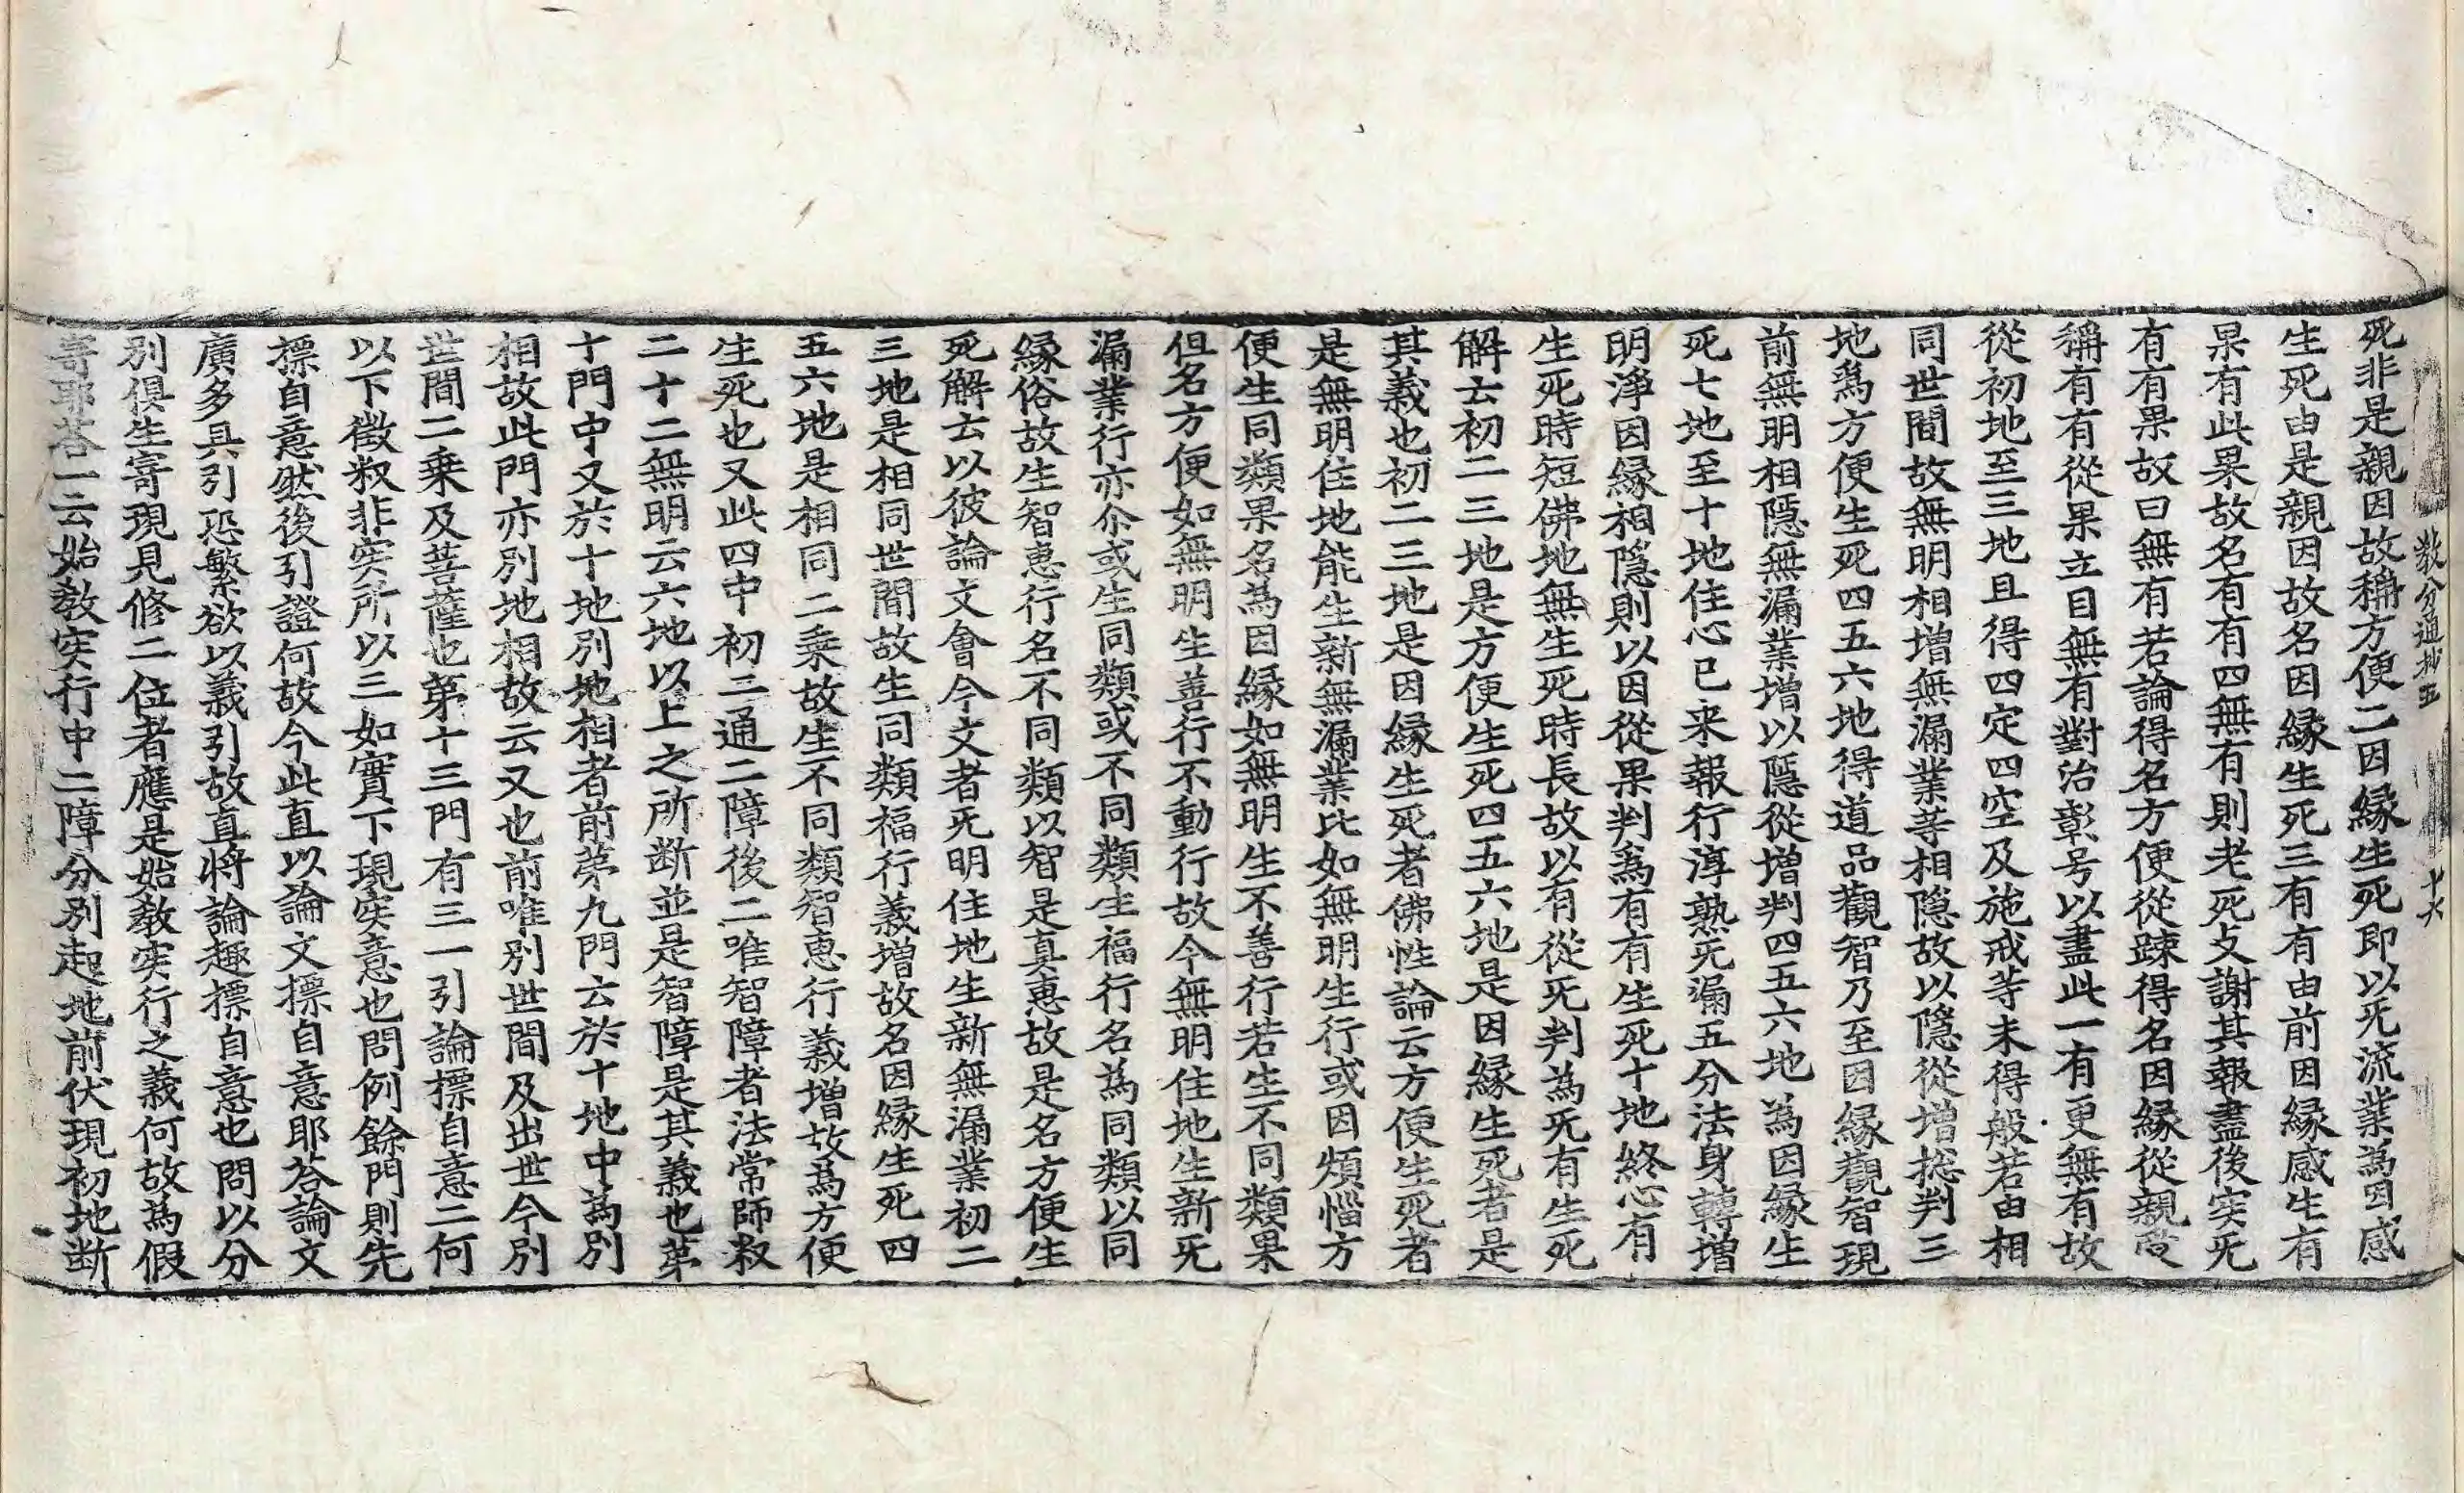 教分通抄五 十六
死非是親因故稱方便二因緣生死即以无流業為因感
生死由是親因故名因緣生死三有有由前因緣感生有
果有此果故名有有四無有則老死攴謝其報盡後実无
有有果故曰無有若論得名方便從踈得名因緣從親
稱有有從果立目無有對治彰号以盡此一有更無有故
從初地至三地且得四定四空及施戒等未得般若由相
同世間故無明相增無漏業等相隱故以隱從增揔判三
地爲方便生死四五六地得道品觀智乃至因緣觀智現
前無明相隱無漏業增以隱從增判四五六地為因緣生
死七地至十地住心已来報行淳熟无漏五分法身轉增
明淨因緣相隱則以因從果判爲有有生死十地終心有
生死時短佛地無生死時長故以有從无判為无有生死
解云初二三地是方便生死四五六地是因緣生死者是
其義也初二三地是因緣生死者佛性論云方便生死者
是無明住地能生新無漏業比如無明生行或因煩惱方
便生同類果名為因緣如無明生不善行若生不同類果
但名方便如無明生善行不動行故今無明住地生新无
漏業行亦尒或生同類或不同類生福行名為同類以同
緣俗故生智惠行名不同類以智是真惠故是名方便生
死解云以彼論文會今文者无明住地生新無漏業初二
三地是相同世間故生同類福行義增故名因緣生死四
五六地是相同二乘故生不同類智惠行義增故爲方便
生死也又此四中初三通二障後二唯智障者法常師叙
二十二無明云六地以上之所断並是智障是其義也第
十門中又於十地別地相者前第九門云於十地中為別
相故此門亦別地相故云又也前唯別世間及出世今別
世間二乘及菩薩也第十三門有三一引論標自意二何
以下徵叙非実所以三如實下現実意也問例餘門則先
摽自意然後引證何故今此直以論文摽自意耶荅論文
廣多具引恐繁欲以義引故直將論趣摽自意也問以分
別俱生寄現見修二位者應是始教実行之義何故為假
寄耶荅一云始教実行中二障分別起地前伏現初地断